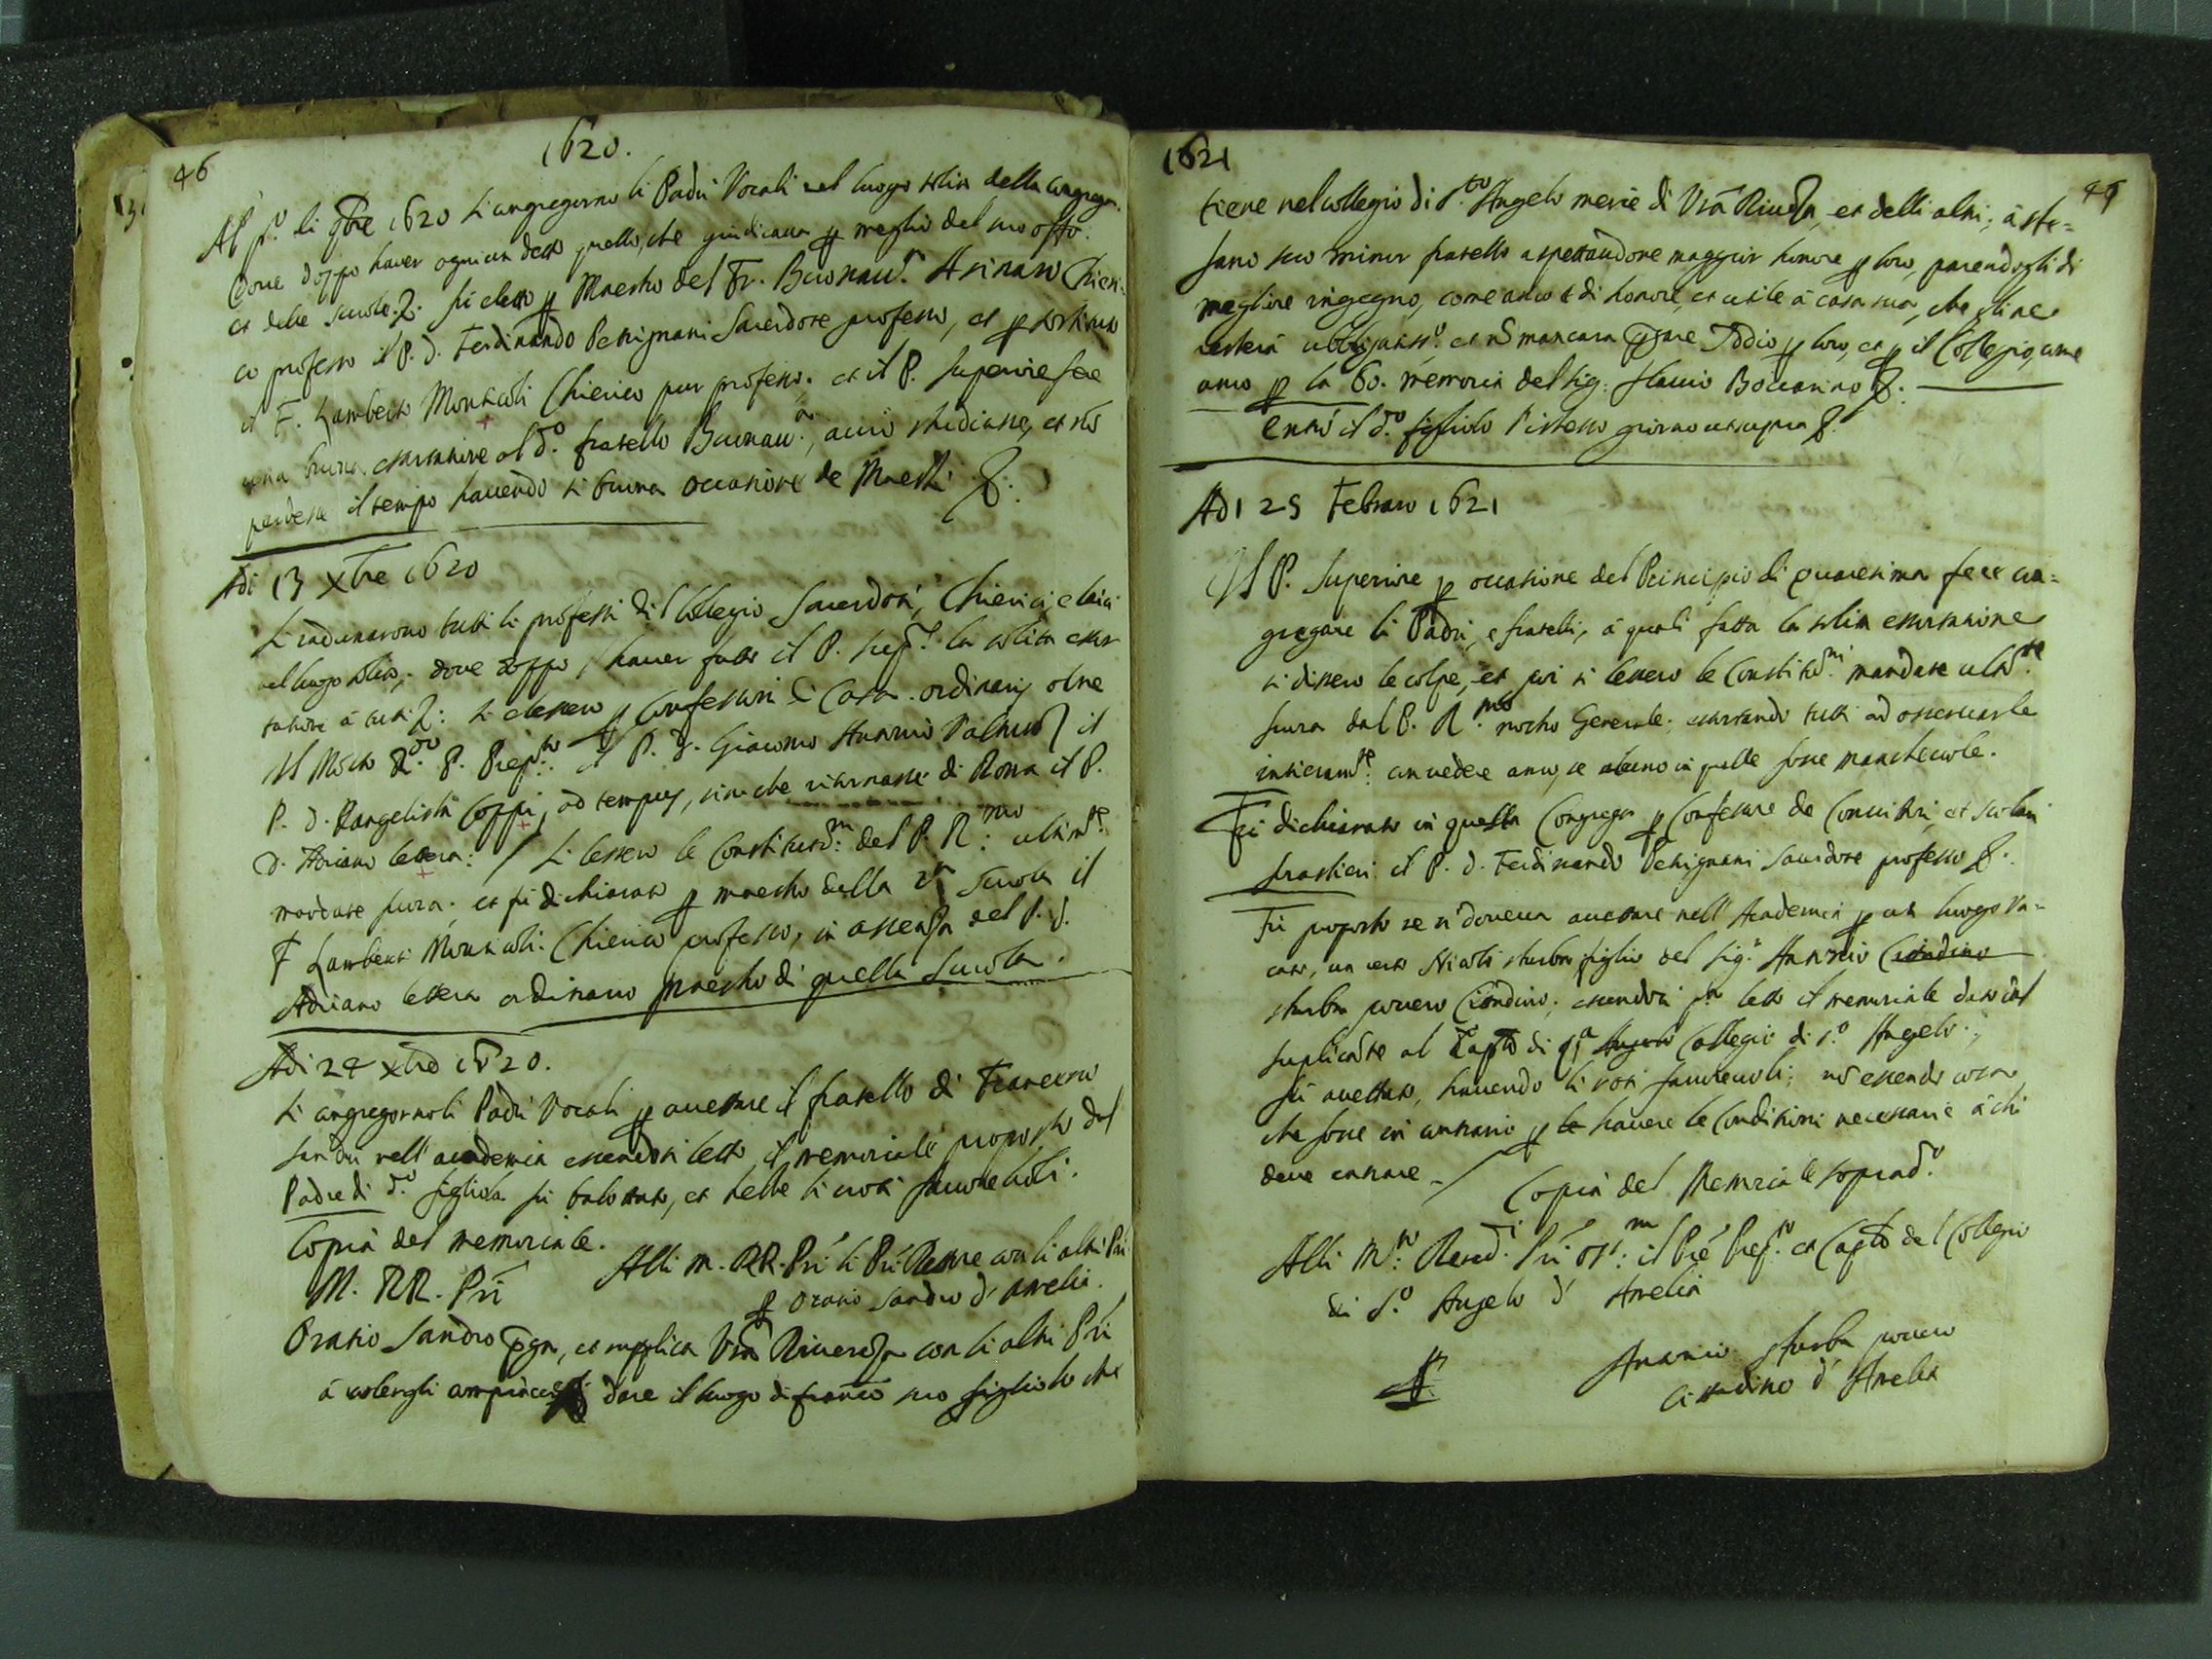 46
1620.
Al p.º di 9bre 1620 si congregorno li Padri Vocali nel luogo solito della congreg.
Dove doppo haver ogniun detto quello, che giudicava p meglio del suo offº.
et delle scuole &. fù eletto p Maestro del Fr. Buonav.ra Asinaro Chieri-
co professo il P. D. Ferdinando Petrignani Sacerdote professo, et p
il F. Lamberto Monticoli Chierico pur professo. et il P. Superiore fece
una buona essortatione al d.º fratello Buonav.ra, acciò studiasse, et nõ
perdesse il tempo havendo sì buona occasione de Maestri &.
Adi 13 Xbre 1620
Si radunarono tutti li professi del Collegio Sacerdoti, Chierici, e laici
nel luogo solito, dove doppo haver fatto il P. Prep.to la solita essor
tatione à tutti &: si elessero p Confessori di Casa ordinarij oltre
Il Molto R.do P. Prep.to il P. D. Giacomo Antonio il
P. D. Vangelista Coppi, ad tempus, sin che ritornasse di Roma il P.
D. Adriano lettera: / Si lessero le Constitutni: del P. R.mo ultimte
mandate fuora. et fù dichiarato p maestro della 2a scuola il
F Lamberto Monticoli. Chierico professo, in assenza del P. D.
Adriano lettera ordinario maestro di quella scuola.
Adi 24 Xbre 1620.
Si congregorno li Padri Vocali p accettare il fratello di Francesco
Sandri nell' academia essendosi letto il memoriale proposto dal
Padre di d.º figliolo fù balottato, et hebbe li voti favorevoli.
Copia del memoriale.
Alli M. RR. Pri li Pri Rettore con li altri Pri
M. RR. Pri
p Oratio Sandro d' Amelia.
Oratio Sandro pga, et supplica Vra Riverza con li altri Pri
à volergli compiacersi dare il luogo di franco suo figliolo che
1621
47
tiene nel collegio di S.to Angelo mercè di Vra Riverza et delli altri, à ste=
fano suo minor fratello aspettandone maggior honore p loro, parendogli di
megliore ingegno, come anco è di honore, et utile à casa sua, che gline
resterà obbligatiss.º et nõ mancarà pgare Iddio p loro, et p il Collegio, come
anco p la bo. memoria del sig. flavio Boccarino &.
Entrò il d.º figliolo l'istesso giorno ut supra &
Adi 25 Febraro 1621
Il P. Superiore p occasione del Principio di Quaresima fece con=
gregare li Padri, e fratelli, à quali fatta la solita essortatione
si dissero le colpe, et poi si lessero le Constitni mandate ultte
fuora dal P. R.mo nostro Generale, essortando tutti ad osservarle
intieramte con vedere anco, se alcuno in quelle fosse manchevole.
Fù dichiarato in questa Congregn p Confessore de Convittori, et scolari
frastieri il P. D. Ferdinando Petrignani Sacerdote professo &.
Fù proposto se si doveva accettare nell' Academia p un luogo va=
cato, un certo Nicolò sturba figlio del sig.r Antonio Cittadino
sturba povero Cittadino, essendosi pa letto il memoriale dato dal
suplicãte al Caplo di qsta Angelo Collegio di S.º Angelo.,
fù accettato, havendo li voti favorevoli, nõ essendo cosa
che fosse in contrario p le havere le Conditioni necessarie à chi
deve entrare _/
Copia del Memoriale sopradº
Alli M.to Revdi Pri ossmi: il Pre Prep.to et Caplo del Collegio
di S.º Angelo d' Amelia
p
Antonio sturba povero
Cittadino d' Amelia